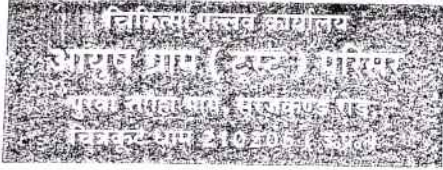 चिकित्सा पल्लव कार्यालय
आयुष ग्राम ( ट्रस्ट ) परिसर
पुरवा तरौंहा मार्ग, सूरजकुण्ड रोड,
चित्रकूट धाम 210205 ( उ.प्र. )